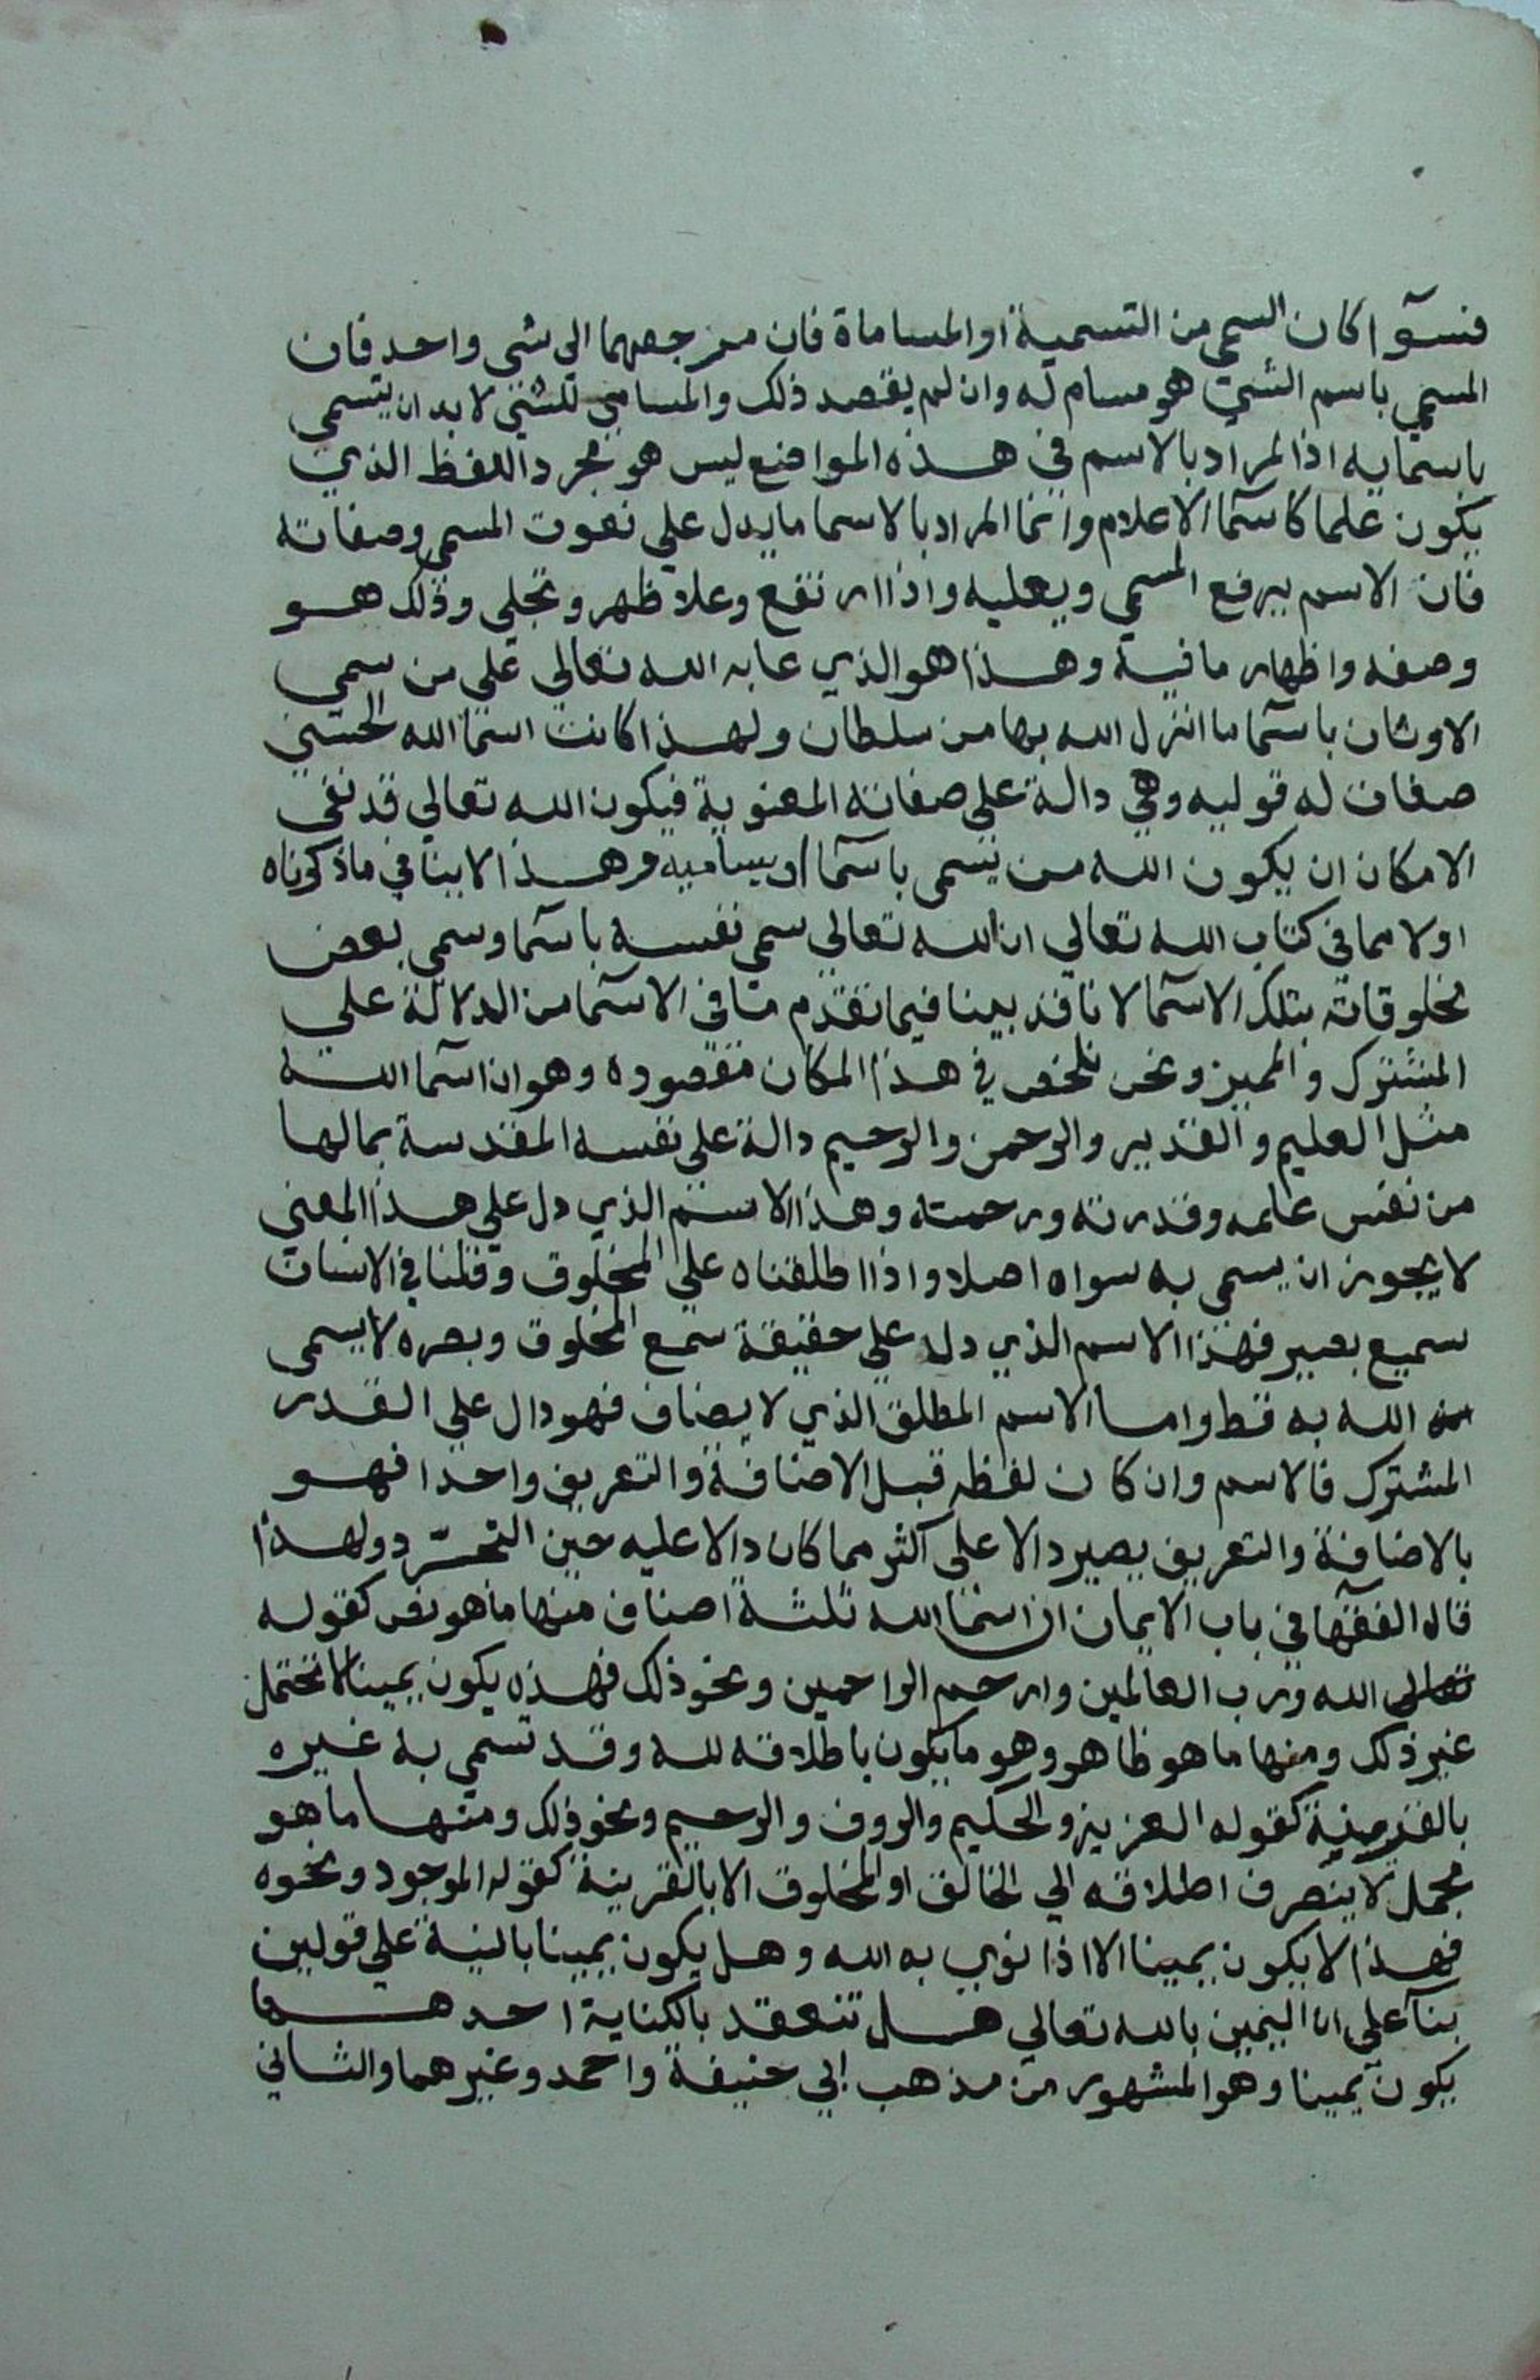 فسوآ اكان السمي من التسمية او المساماة فان مرجعهما الي شي واحد فان
المسمي باسم الشي هو مسام له وان لم يقصد ذلك والمسامي للشي لا بد ان يتسمي
باسمايه اذ المراد بالاسم في هذه المواضع ليس هو مجرد اللفظ الذي
يكون علما كاسمآ الاعلام وانما المراد بالاسما ما يدل علي نعوت المسمي وصفاته
فان الاسم يرفع المسمي ويعليه واذا ارتفع وعلا ظهر وتجلي وذلك هو
وصفه واظهار ما فيه وهذا هو الذي عابه الله تعالي علي من سمي
الاوثان باسمآ ما انزل الله بها من سلطان ولهذا كانت اسمآ الله الحسني
صفات له قوليه وهي دالة علي صفاته المعنوية فيكون الله تعالي قد نفي
الامكان ان يكون الله من يتسمي باسمآ او يساميه وهذا لا ينافي ما ذكرناه
اولا مما في كتاب الله تعالي ان الله تعالي سمي نفسه باسمآ وسمي بعض
مخلوقاته بتلك الاسمآ لانا قد بينا فيما تقدم متا في الاسمآ من الدلالة علي
المشترك والمميز ونحن نلخص في هذا المكان مقصوده وهو ان اسمآ الله
مثل العليم والقدير والرحمن والرحيم دالة علي نفسه المقدسة بما لها
من نفس علمه وقدرته ورحمته وهذا الاسم الذي دل علي هذا المعني
لا يجوز ان يسمي به سواه اصلا واذا اطلقناه علي المخلوق وقلنا في الانسان
سميع بصير فهذا الاسم الذي دل علي حقيقة سمع المخلوق وبصره لا يسمي
الله به قط واما الاسم المطلق الذي لا يضاف فهو دال علي القدر
المشترك فالاسم وان كان لفظه قبل الاضافة والتعريف واحدا فهو
بالاضافة والتعريف يصير دالا علي اكثر مما كان دالا عليه حين التجرد ولهذا
قال الفقهآ في باب الايمان ان اسمآ الله ثلثة اصناف منها ما هو نص كقوله
تعالي الله ورب العالمين وارحم الراحمين ونحو ذلك فهذه يكون يمينا لا تحتمل
غير ذلك ومنها ما هو ظاهر وهو ما يكون باطلاقه لله وقد تسمي به غيره
بالقرينة كقوله العزيز والحكيم والروف والرحيم ونحو ذلك ومنها ما هو
مجمل لا ينصرف اطلاقه الي الخالق او المخلوق الا بالقرينة كقوله الموجود ونحوه
فهذا لا يكون يمينا الا اذا نوي به الله وهل يكون يمينا بالنية علي قولين
بنآ علي ان اليمين بالله تعالي هل تنعقد بالكناية احدهما
يكون يمينا وهو المشهور من مذهب ابي حنيفة واحمد وغيرهما والثاني